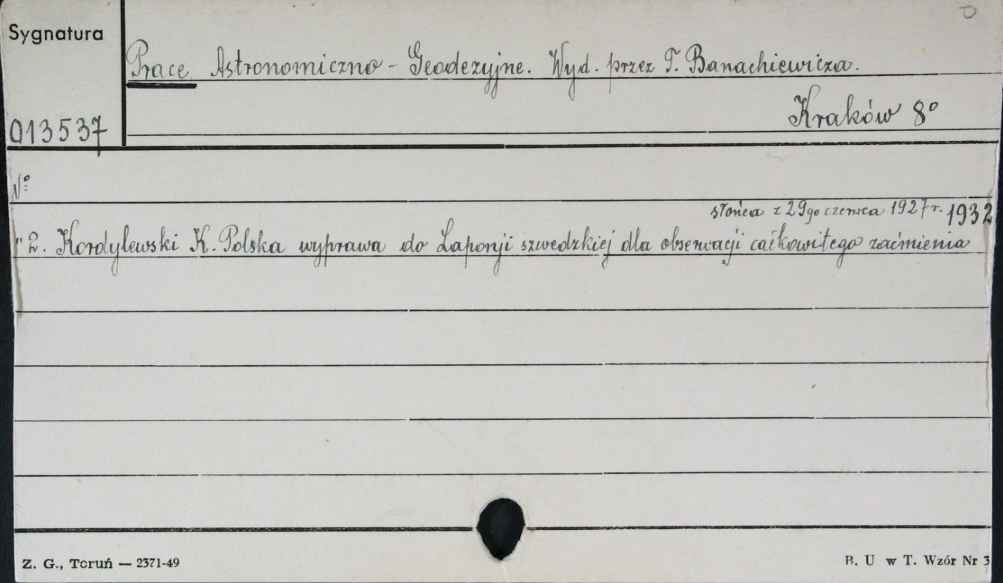 Sygnatura
Prace Astronomiczno - Geodezyjne. Wyd. przez T. Banachiewicza.
013537
Kraków 8°
N°
słońca z 29go czerwca 1927 r. 1932
2. Kordylewski K. Polska wyprawa do Laponji szwedzkiej dla obserwacji całkowitego zaćmienia
Z. G., Toruń — 2371-49
B. U w T. Wzór Nr 3